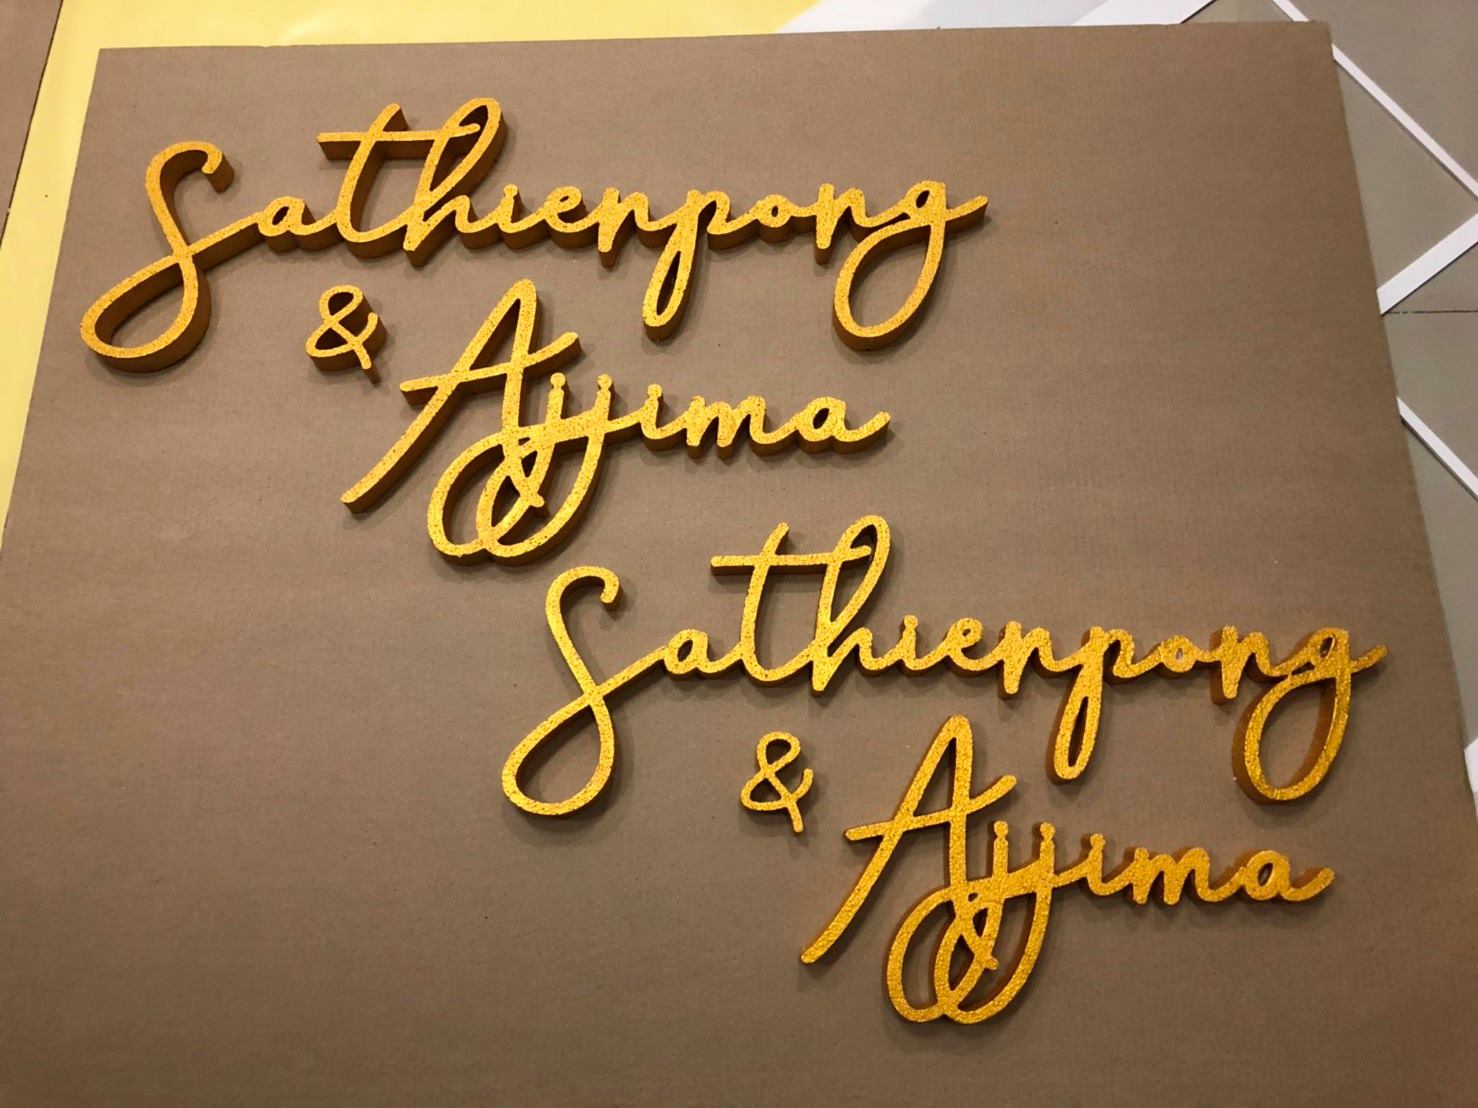 Sathienpong
& Ajjima
Sathienpong
& Ajjima